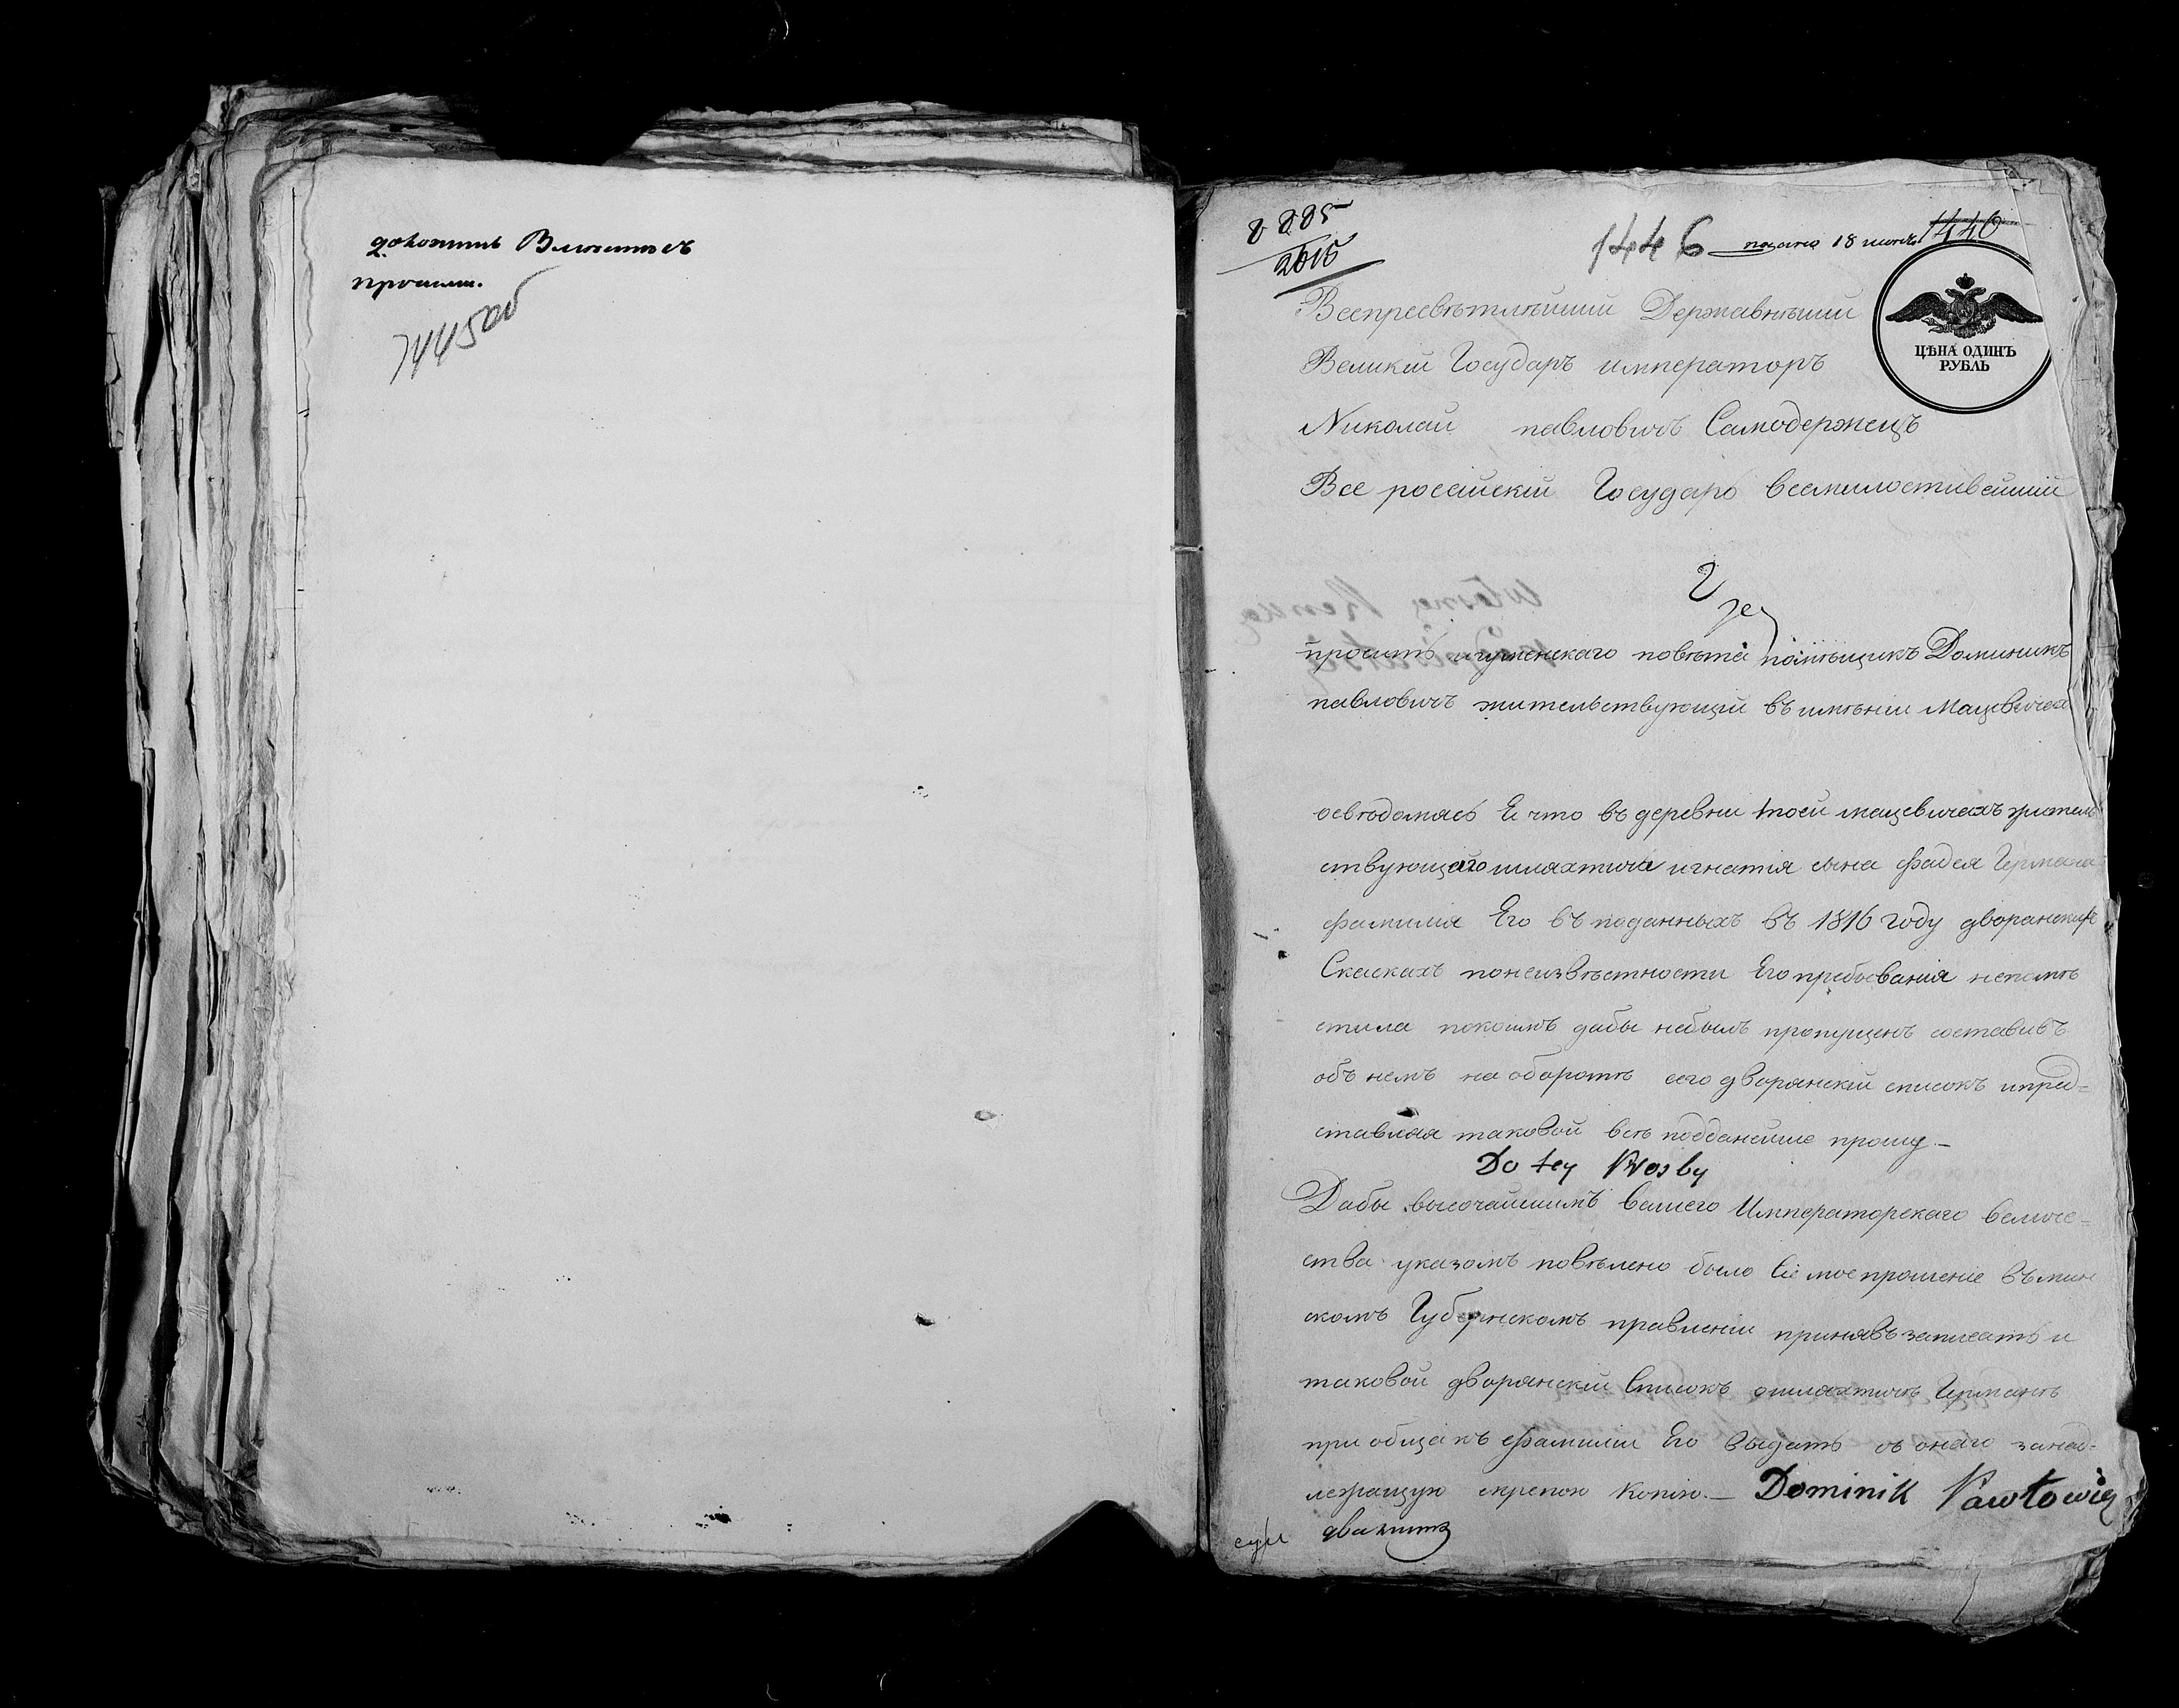 доложить
1445об
8885
2515
1446 подано 18 июня 1440
ЦѢНА ОДИНЪ
РУБЛЬ
Всепресвѣтлѣйший Державнѣший
Великій Государъ императоръ
Николай павловичъ Самодержецъ
Все росийскій Государъ всемилостивейшій
проситъ игуменскаго повѣта помѣщикъ Доминикъ
павловичъ жительствующій въ имѣніи Мацевичах
освѣдомясь Я что въ деревни моей мацевичахъ жытель
ствующаго шляхтича игнатія сына фадея Германа
фамилія Его въ поданныхъ въ 1816 году дворанскихъ
Скаскахъ понеизвѣстности Его пребыванія непомѣ
стила покоимъ дабы небылъ пропущенъ составивъ
объ немъ на оборотѣ сего дворянскій списокъ ипред=
ставляя таковой всѣ подданейше прошу —
Do tey Prosby
Дабы высочайшимъ вашего Императорскаго величе=
ства указомъ повѣлено было Сіе мое прошеніе въмин
скомъ Губернскомъ правленіи принявъ записать и
таковой дворянскій Списокъ ошляхтичѣ Германѣ
при общакъ фамиліи Его выдать съ онаго занад=
лежащую скрепою копію — Dominik Pawłowicz